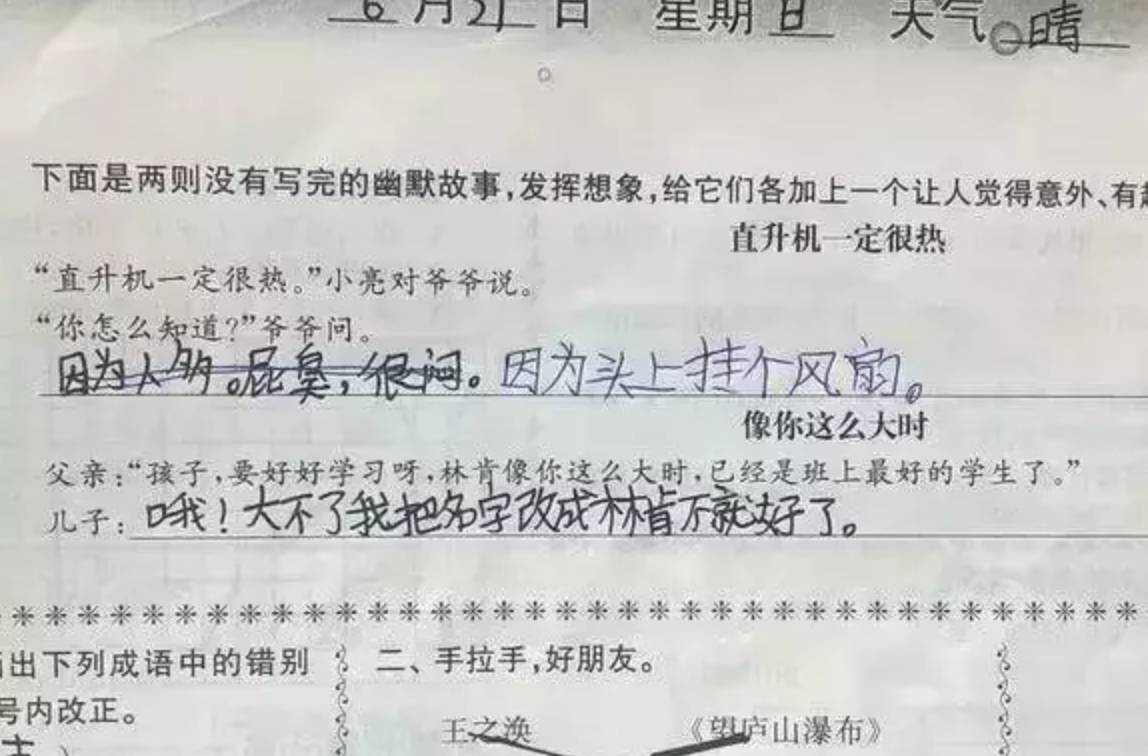 6月21日 星期日 天气 晴
下面是两则没有写完的幽默故事,发挥想象,给它们各加上一个让人觉得意外、有
直升机一定很热
“直升机一定很热。”小亮对爷爷说。
“你怎么知道?”爷爷问。
因为人多。屁臭,很闷。因为头上挂个风扇。
像你这么大时
父亲:“孩子,要好好学习呀,林肯像你这么大时,已经是班上最好的学生了。”
儿子:哦!大不了我把名字改成林肯不就好了。
出下列成语中的错别 二、手拉手,好朋友。
号内改正。
王之涣 《望庐山瀑布》